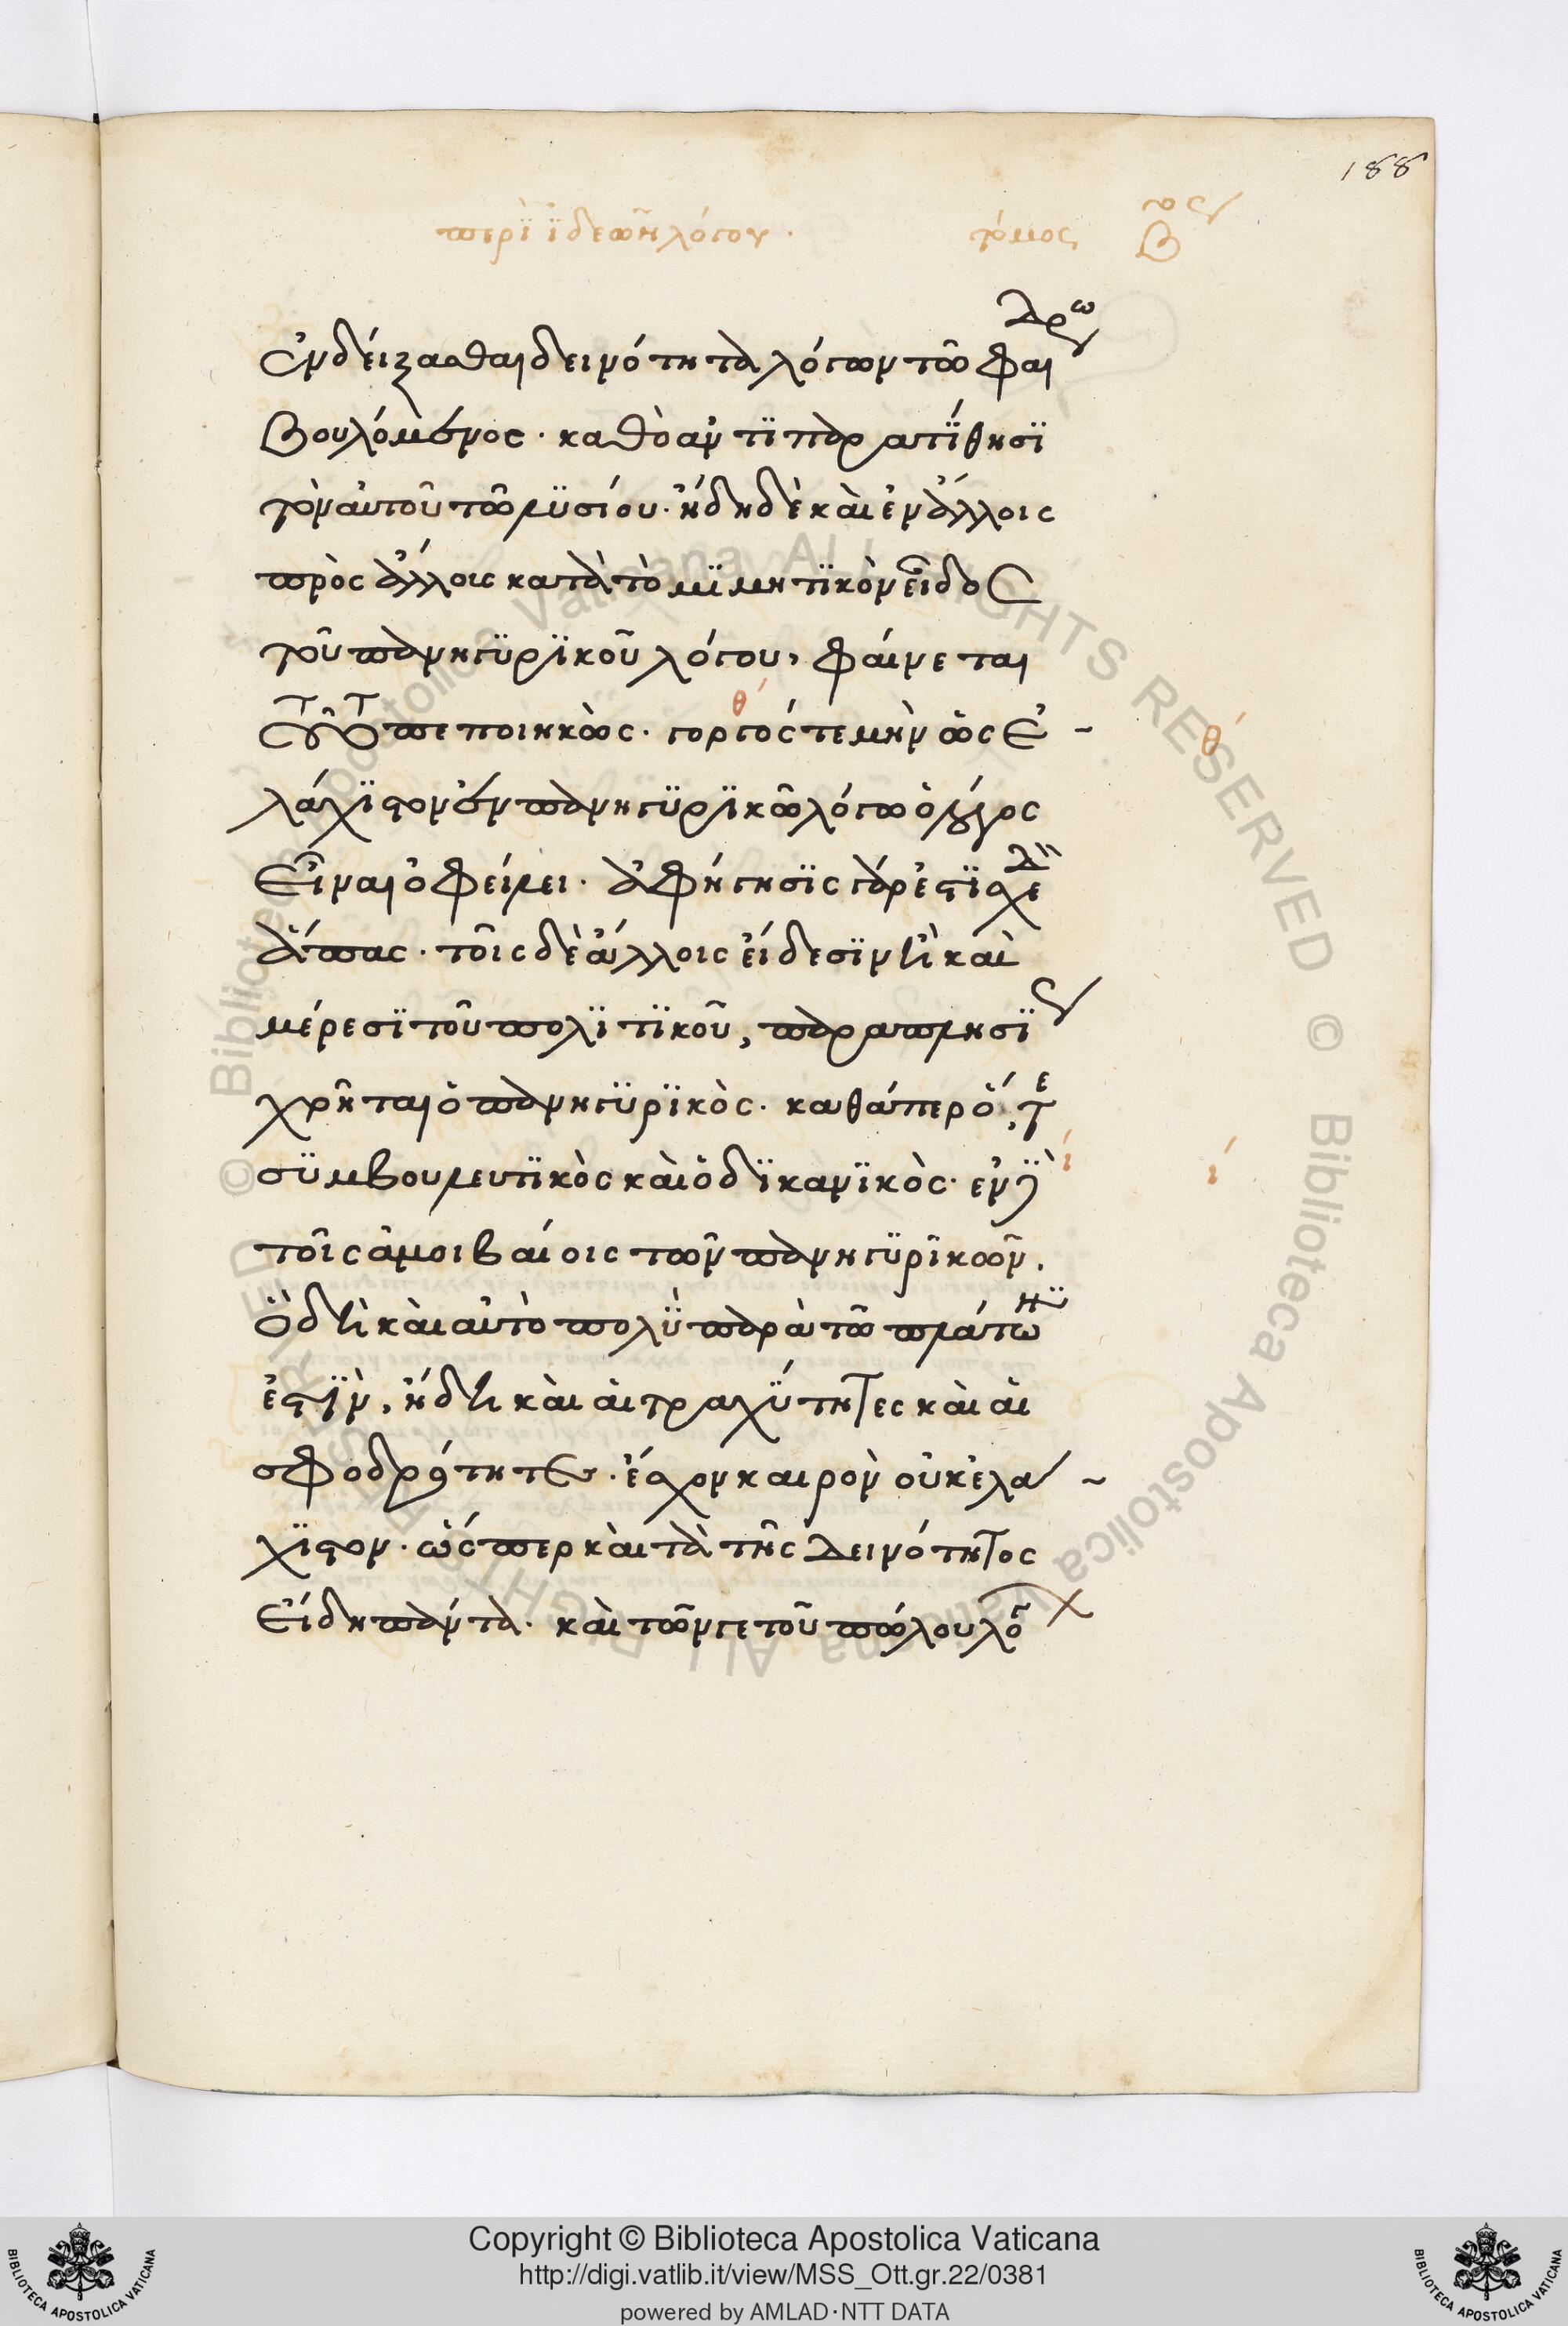 188
περὶ ἰδεῶν λόγου. τόμος Βος
ἐνδείξασθαι δεινότητα λόγων τῶ Φαίδρω
βουλόμενος· καθὸ ἀντιπαρατίθησι
τὸν αὐτοῦ τῶ λυσίου· ἤδη δὲ καὶ ἐν ἄλλοις
πρὸς ἄλλοις κατὰ τὸ μιμητικὸν εἶδος
τοῦ πανηγυρικοῦ λόγου, φαίνεται
τοῦτο πεποιηκώς. γοργός τε μὴν ὡς ἐ-
λάχιστον ἐν πανηγυρικῶ λόγω ὁ λόγος
εἶναι ὀφείλει· ἀφήγησις γάρ ἐστι σχεδὸν
ἅπας· τοῖς δὲ ἄλλοις εἴδεσιν ἢ καὶ
μέρεσι τοῦ πολιτικοῦ, παραπλησίως
χρῆται ὁ πανηγυρικὸς· καθάπερ ὅ,τε
συμβουλευτικὸς καὶ ὁ δικανικὸς· ἐν δὲ
τοῖς ἀμοιβαίοις τῶν πανηγυρικῶν,
ὃ δὴ καὶ αὐτὸ πολὺ παρὰ τῶ πλάτωνι
ἐστὶν, ἤδη καὶ αἱ τραχύτητες καὶ αἱ
σφοδρότητες· ἔσχον καιρὸν οὐκ ἐλα-
χιστον· ὥσπερ καὶ τὰ τῆς δεινότητος
εἴδη πάντα· καὶ τῶν γε τοῦ πώλου λό
θ
θ
ι
ι
Copyright © Biblioteca Apostolica Vaticana
http://digi.vatlib.it/view/MSS_Ott.gr.22/0381
powered by AMLAD·NTT DATA
BIBLIOTECA APOSTOLICA VATICANA
BIBLIOTECA APOSTOLICA VATICANA